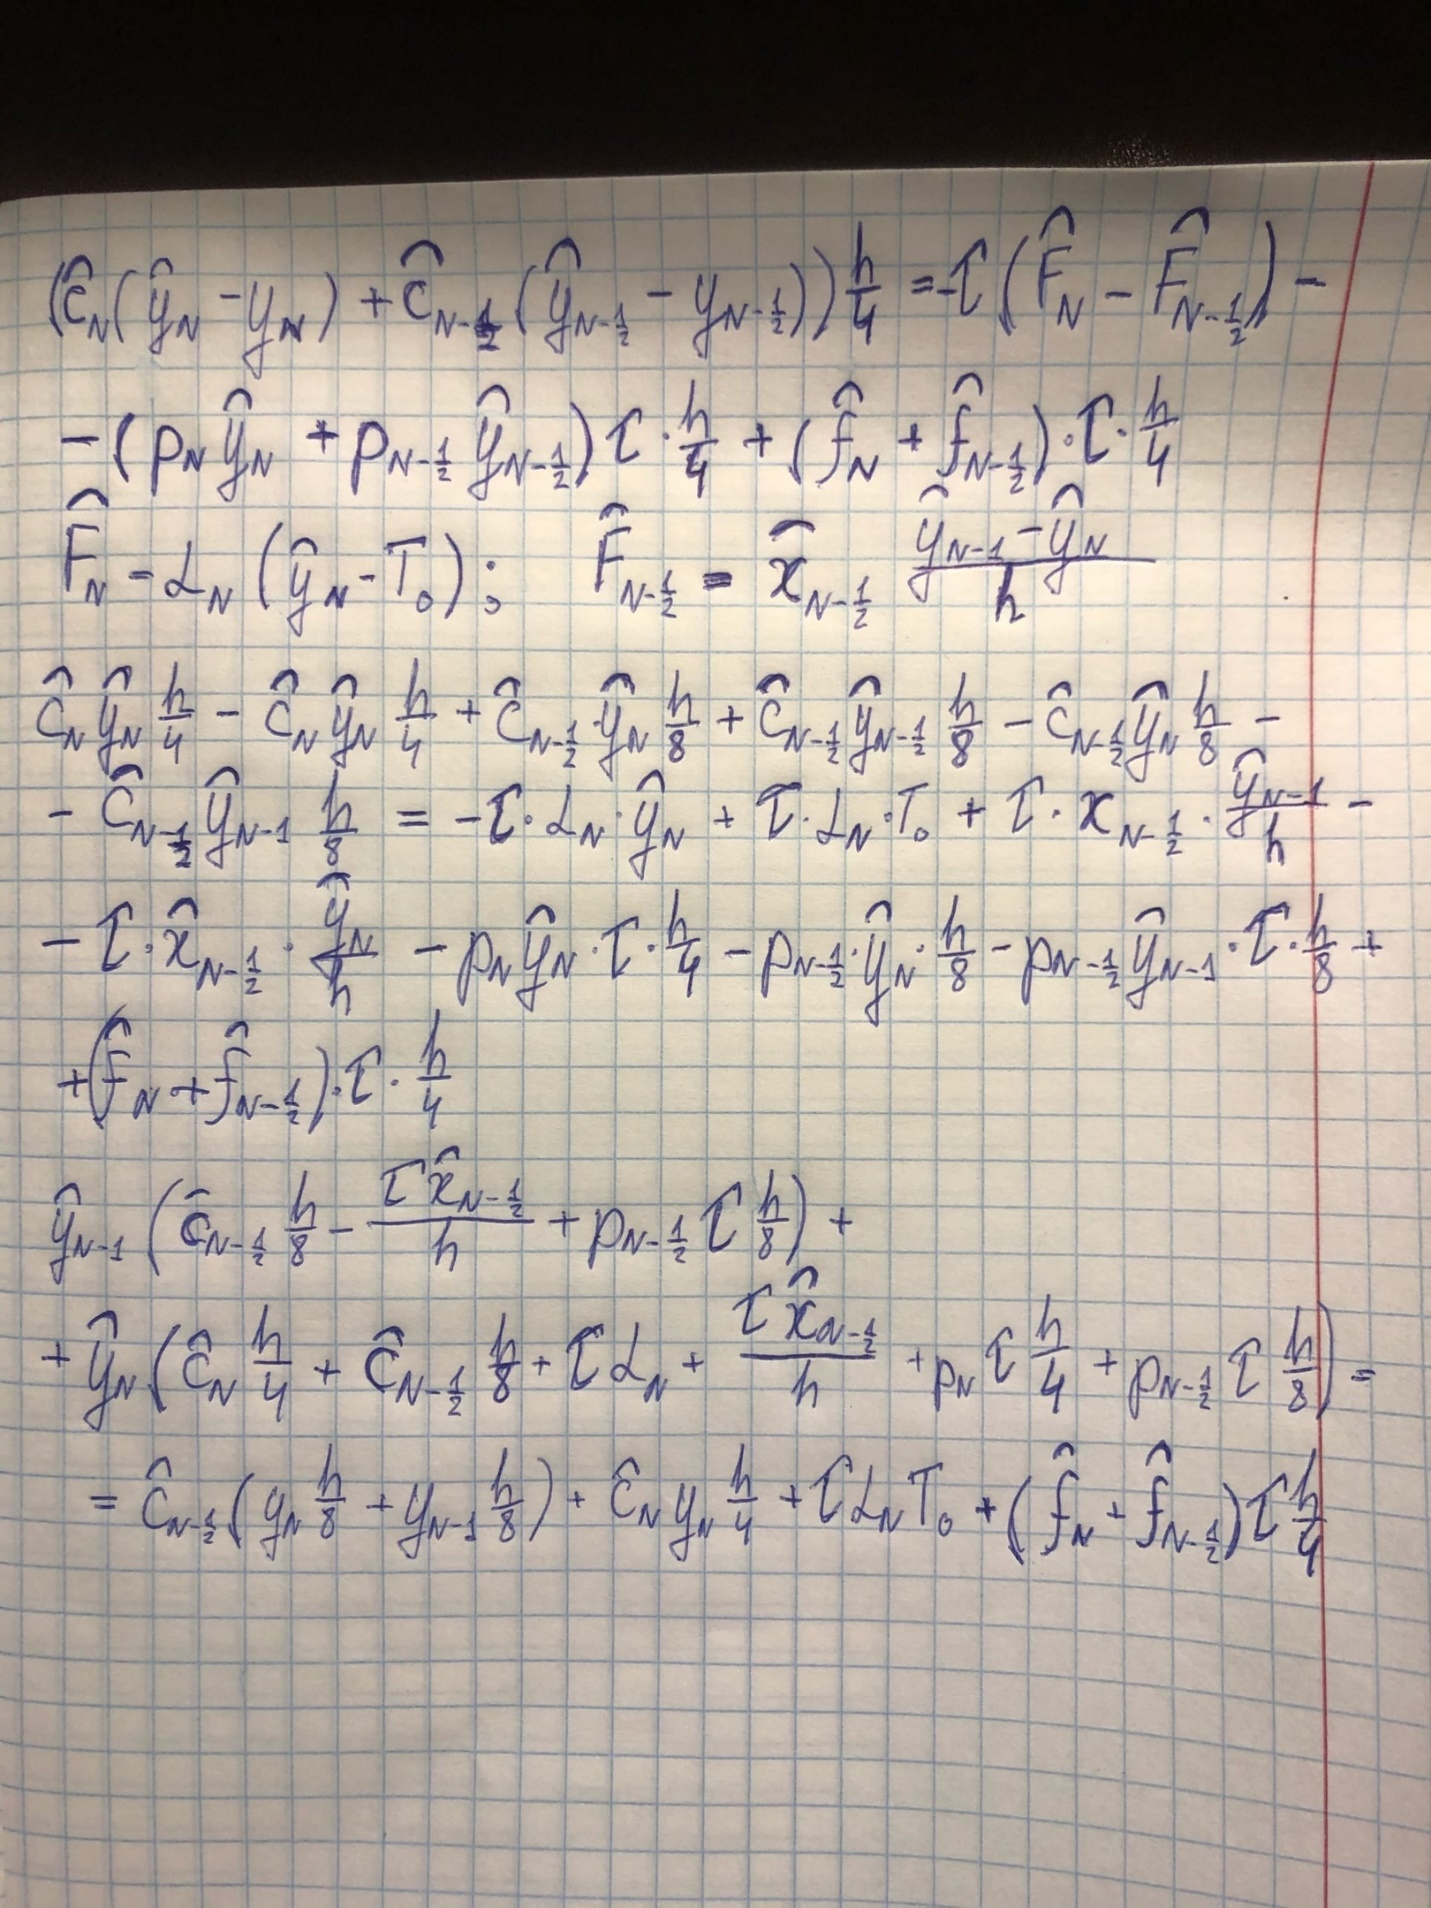 (ĉ_N(ŷ_N - y_N) + ĉ_{N-1/2}(ŷ_{N-1/2} - y_{N-1/2})) h/4 = -τ(F̂_N - F̂_{N-1/2}) -
- (p_N ŷ_N + p_{N-1/2} ŷ_{N-1/2}) τ · h/4 + (f̂_N + f̂_{N-1/2}) · τ · h/4
F̂_N = α_N (ŷ_N - T_0); F̂_{N-1/2} = x̂_{N-1/2} (ŷ_{N-1} - ŷ_N)/h
ĉ_N ŷ_N h/4 - ĉ_N ŷ_N h/4 + ĉ_{N-1/2} · ŷ_N h/8 + ĉ_{N-1/2} ŷ_{N-1} h/8 - ĉ_{N-1/2} ŷ_N h/8 -
- ĉ_{N-1/2} ŷ_{N-1} h/8 = -τ · α_N · ŷ_N + τ · α_N · T_0 + τ · x_{N-1/2} · ŷ_{N-1}/h -
- τ · x̂_{N-1/2} · ŷ_N/h - p_N ŷ_N · τ · h/4 - p_{N-1/2} · ŷ_N · h/8 - p_{N-1/2} ŷ_{N-1} · τ · h/8 +
+ (f̂_N + f̂_{N-1/2}) · τ · h/4
ŷ_{N-1} (ĉ_{N-1/2} h/8 - τ x̂_{N-1/2}/h + p_{N-1/2} τ h/8) +
+ ŷ_N (ĉ_N h/4 + ĉ_{N-1/2} h/8 + τ α_N + τ x̂_{N-1/2}/h + p_N τ h/4 + p_{N-1/2} τ h/8) =
= ĉ_{N-1/2} (y_N h/8 + y_{N-1} h/8) + ĉ_N y_N h/4 + τ α_N T_0 + (f̂_N + f̂_{N-1/2}) τ h/4